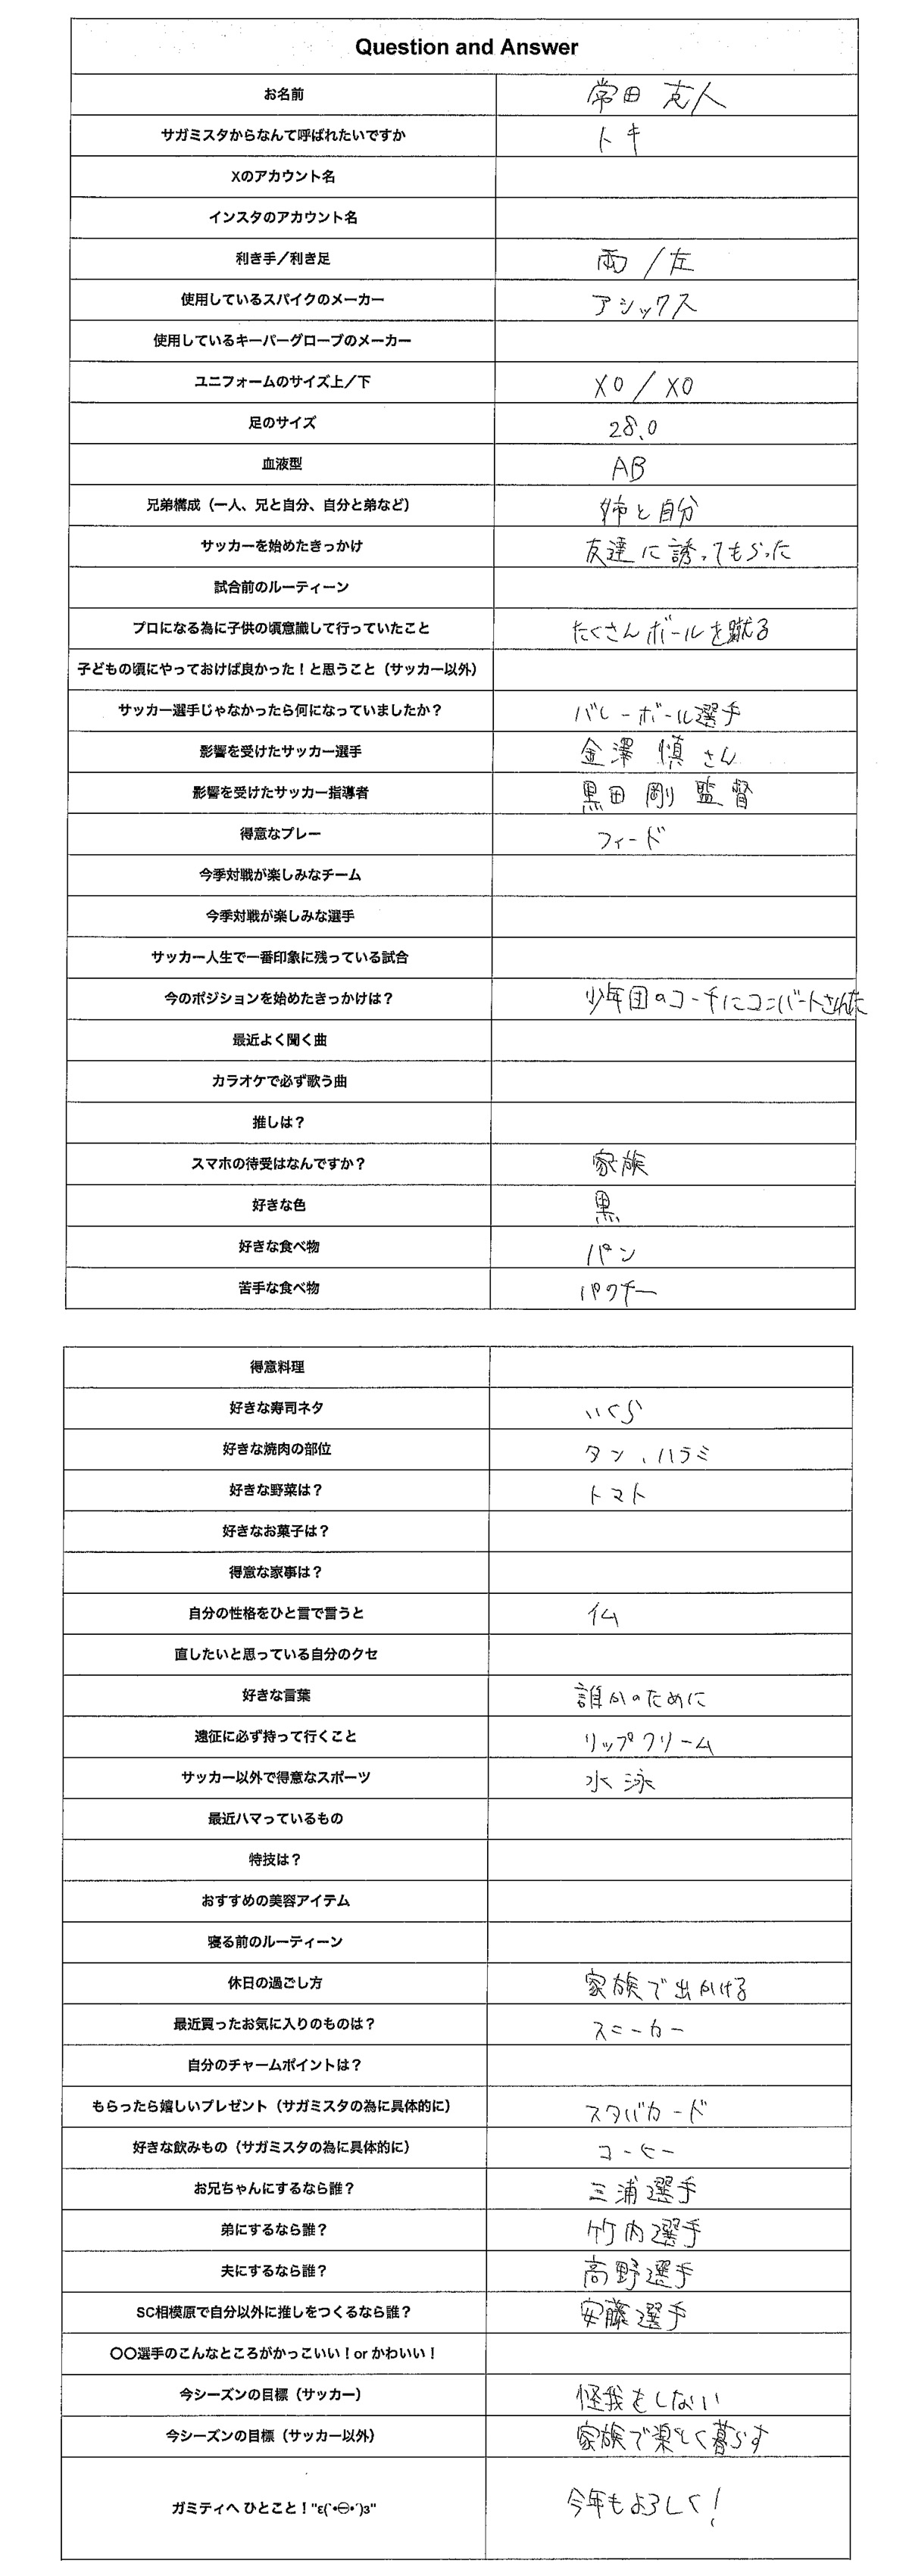 Question and Answer
お名前 常田 克人
サガミスタからなんて呼ばれたいですか トキ
Xのアカウント名
インスタのアカウント名
利き手／利き足 両 / 左
使用しているスパイクのメーカー アシックス
使用しているキーパーグローブのメーカー
ユニフォームのサイズ上／下 XO / XO
足のサイズ 28.0
血液型 AB
兄弟構成（一人、兄と自分、自分と弟など） 姉と自分
サッカーを始めたきっかけ 友達に誘ってもらった
試合前のルーティーン
プロになる為に子供の頃意識して行っていたこと たくさんボールを蹴る
子どもの頃にやっておけば良かった！と思うこと（サッカー以外）
サッカー選手じゃなかったら何になっていましたか？ バレーボール選手
影響を受けたサッカー選手 金澤 慎さん
影響を受けたサッカー指導者 黒田 剛 監督
得意なプレー フィード
今季対戦が楽しみなチーム
今季対戦が楽しみな選手
サッカー人生で一番印象に残っている試合
今のポジションを始めたきっかけは？ 少年団のコーチにコンバートされた
最近よく聞く曲
カラオケで必ず歌う曲
推しは？
スマホの待受はなんですか？ 家族
好きな色 黒
好きな食べ物 パン
苦手な食べ物 パクチー
得意料理
好きな寿司ネタ いくら
好きな焼肉の部位 タン、ハラミ
好きな野菜は？ トマト
好きなお菓子は？
得意な家事は？
自分の性格をひと言で言うと 仏
直したいと思っている自分のクセ
好きな言葉 誰かのために
遠征に必ず持って行くこと リップクリーム
サッカー以外で得意なスポーツ 水泳
最近ハマっているもの
特技は？
おすすめの美容アイテム
寝る前のルーティーン
休日の過ごし方 家族で出かける
最近買ったお気に入りのものは？ スニーカー
自分のチャームポイントは？
もらったら嬉しいプレゼント（サガミスタの為に具体的に） スタバカード
好きな飲みもの（サガミスタの為に具体的に） コーヒー
お兄ちゃんにするなら誰？ 三浦選手
弟にするなら誰？ 竹内選手
夫にするなら誰？ 高野選手
SC相模原で自分以外に推しをつくるなら誰？ 安藤選手
〇〇選手のこんなところがかっこいい！or かわいい！
今シーズンの目標（サッカー） 怪我をしない
今シーズンの目標（サッカー以外） 家族で楽しく暮らす
ガミティへ ひとこと！"ε(`•㊀•´)з" 今年もよろしく！